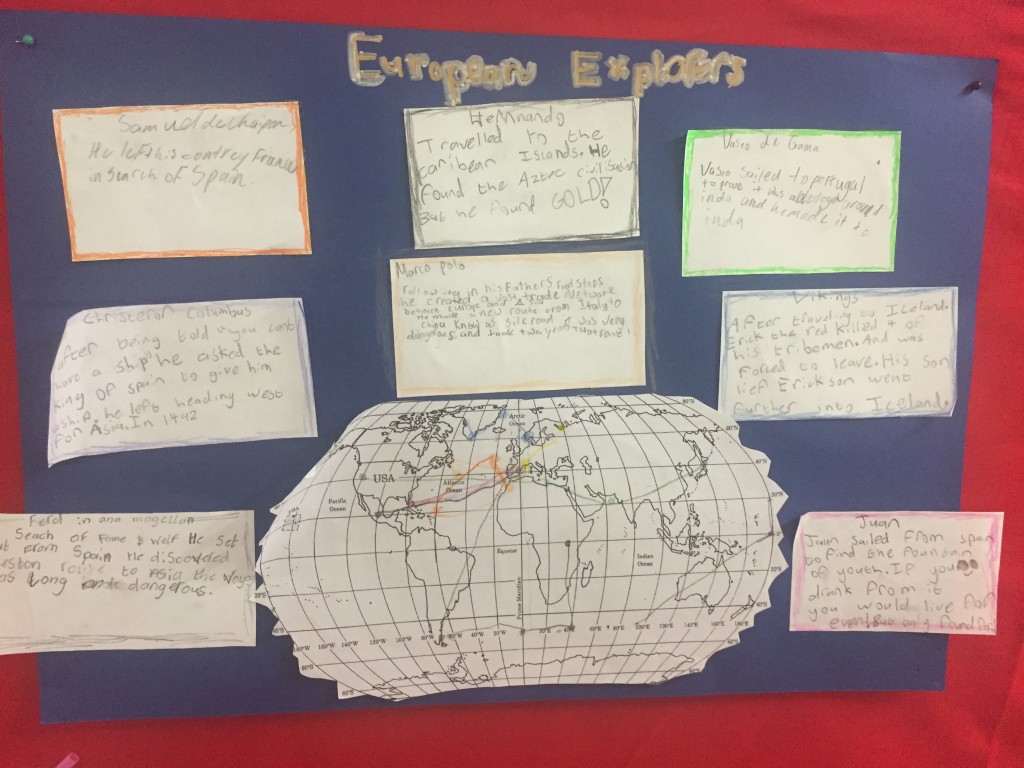 European Explorers
Samuel de Champ
He left his contrey France
in search of Spain.
HeMnando
Travelled to the
caribean Islands. He
found the Aztec civilisation
But he found GOLD!
Vasco de Gama
Vasio sailed to portugal
to prove it was
inda and he made it to
inda
Marco polo
Following in his fathers footsteps
he created a vast trade network
between Europe and Asia
He made a new route from Italy to
China known as silkroad was very
dangerous and took
Christerfor Columbus
After being told "you cant
have a ship" he asked the
King of spain to give him
a ship. he left heading west
for Asia. In 1442
Vikings
After traveling to Iceland.
Erick the red killed of
his tribemen. And was
forced to leave. His son
lief Erickson went
further into Iceland.
Ferd in ana magellan
Seach of Fame & welf He set
ut from Spain He discoverd
eston route to Asia the Voya
as Long dangerous.
Juan
Juan sailed from span
to find the fountan
of youth. If you
drank from it
you would live for
only found
Arctic
Ocean
USA
Atlantic
Ocean
Pacific
Ocean
Equator
Indian
Ocean
Prime Meridian